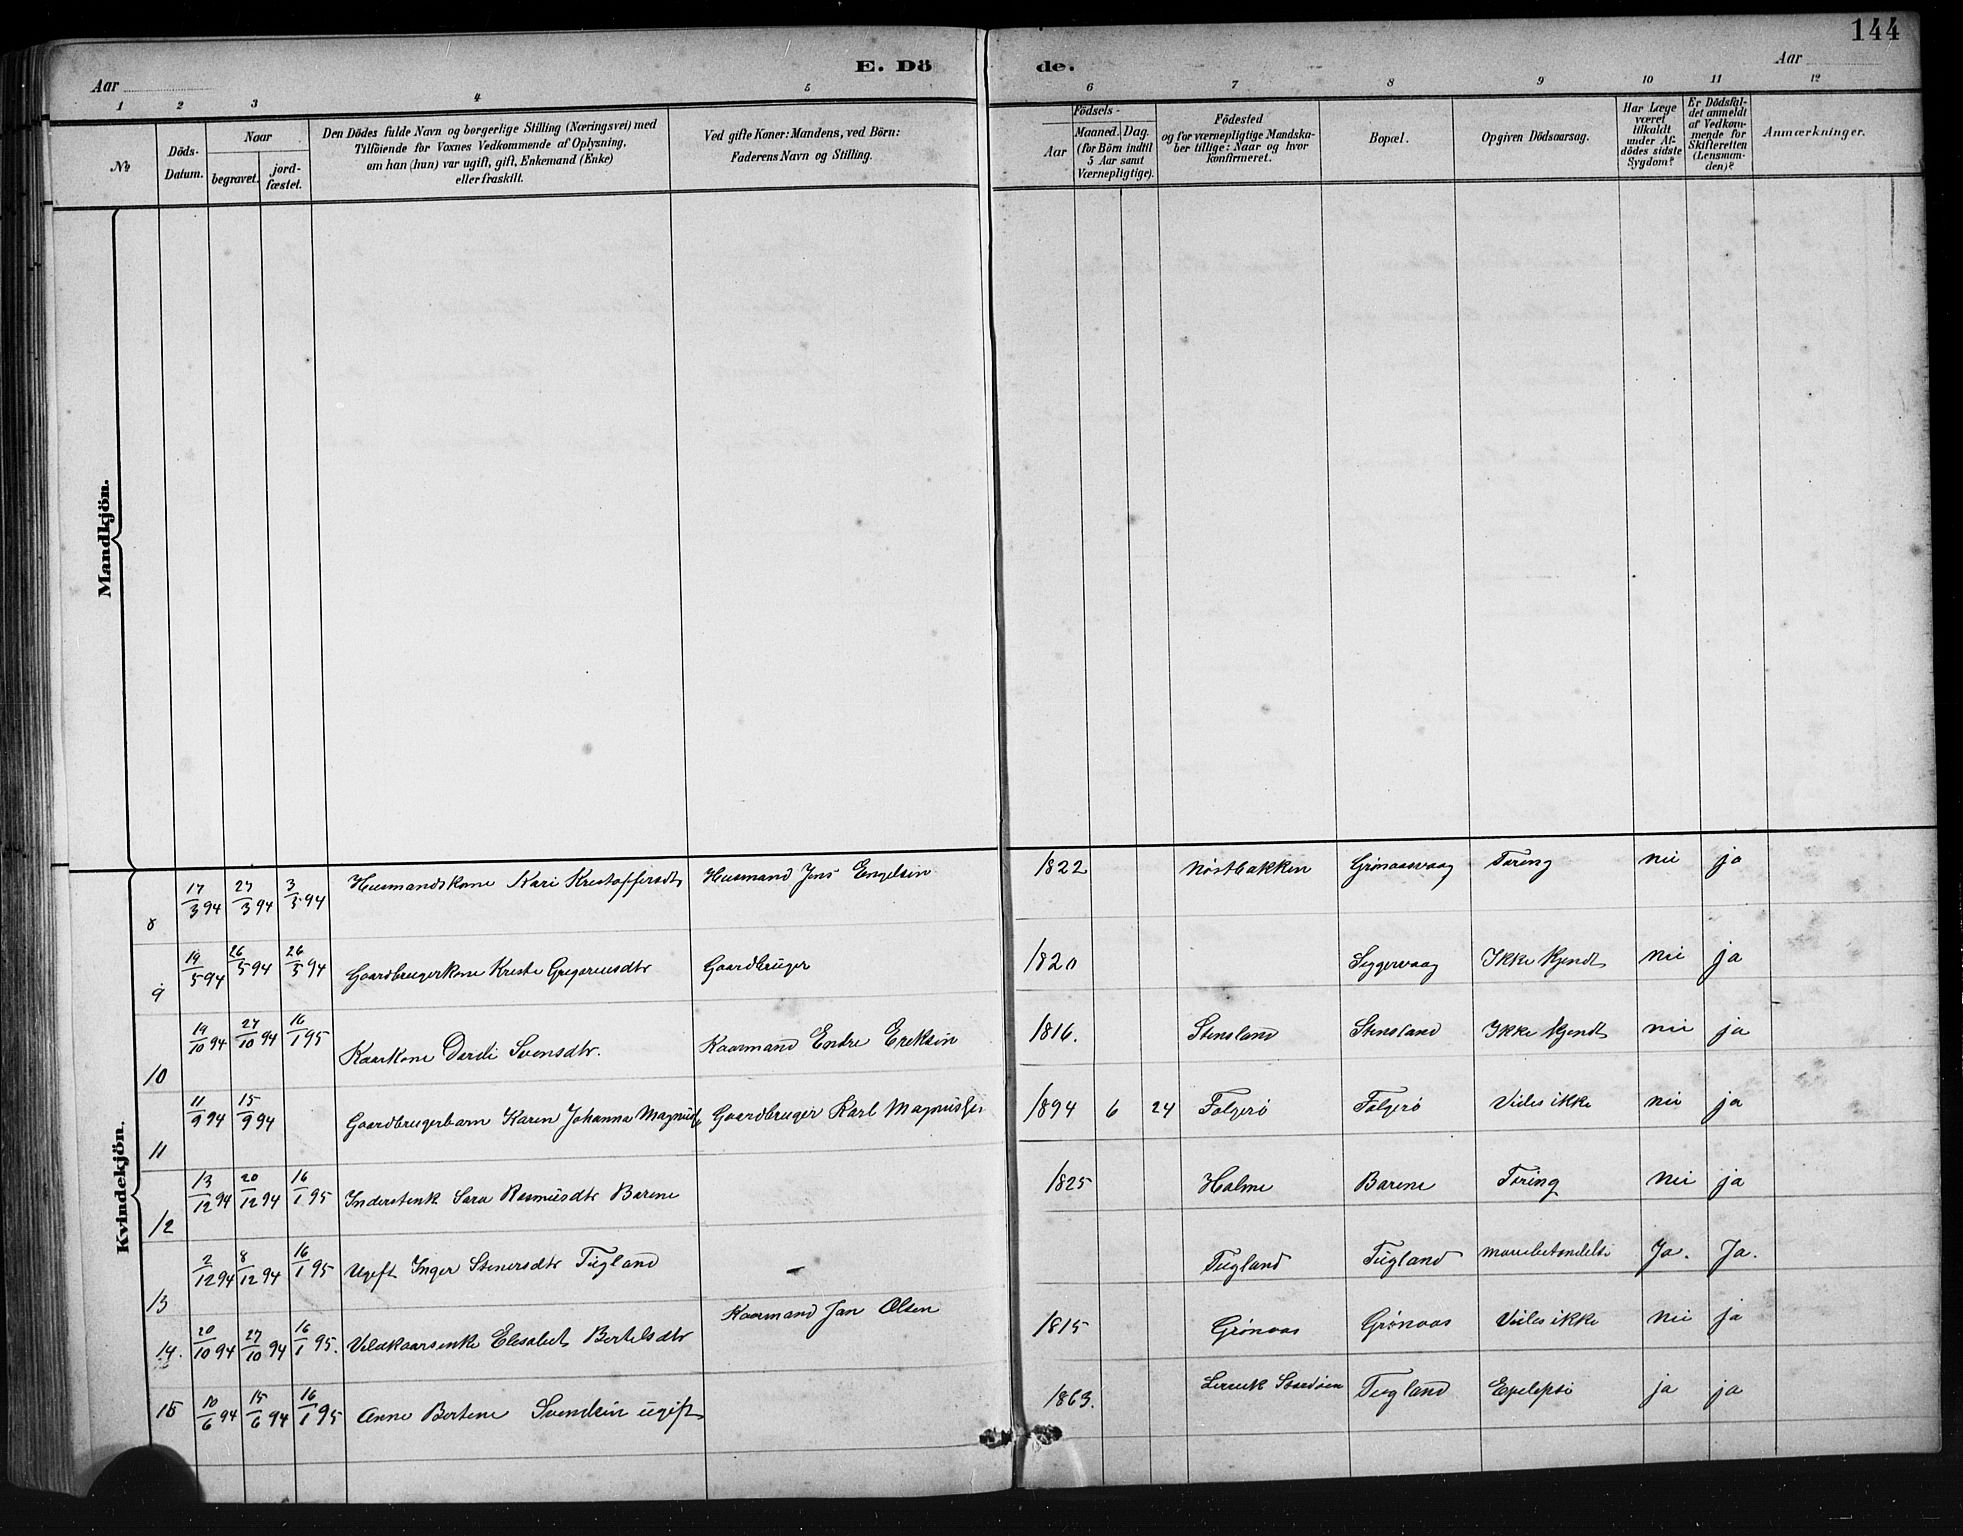 144
E. Döde.
Aar
Aar
1 2 3 4 5 6 7 8 9 10 11 12
No
Döds-Datum.
Naar
begravet.
jord-fæstet.
Den Dödes fulde Navn og borgerlige Stilling (Næringsvei) med
Tilföiende for Voxnes Vedkommende af Oplysning,
om han (hun) var ugift, gift, Enkemand (Enke)
eller fraskilt.
Ved gifte Koner: Mandens, ved Börn:
Faderens Navn og Stilling.
Födsels-
Aar
Maaned. Dag.
(for Börn indtil
5 Aar samt
Værnepligtige).
Födested
og for værnepligtige Mandska-
ber tillige: Naar og hvor
konfirmeret.
Bopæl.
Opgiven Dödsaarsag.
Har Læge
været
tilkaldt
under Af-
dödes sidste
Sygdom?
Er Dödsfal-
det anmeldt
af Vedkom-
mende for
Skifteretten
(Lensman-
den)?
Anmærkninger.
Mandkjön.
Kvindekjön.
8 17/3 94 27/3 94 3/5 94 Husmandskone Kari Kristoffersdtr Husmand Jens Engelsen 1822 Nøstbakken Grønaasvaag Tæring nei ja
9 19/5 94 26/5 94 26/5 94 Gaardbrugerkone Kreste Gregoriusdtr Gaardbruger 1820 Seggervaag Ikke kjendt nei ja
10 19/10 94 27/10 94 16/1 95 Kaarkone Dordi Svensdtr. Kaarmand Endre Eriksen 1816. Stensland Stensland Ikke kjendt nei ja
11 11/9 94 15/9 94 Gaardbrugerbarn Karen Johanna Magnusd Gaardbruger Karl Magnussen 1894 6 24 Folgerø Folgerø Vides ikke nei ja
12 13/12 94 20/12 94 16/1 95 Inderstenk Sara Rasmusdtr Barene 1825 Holme Barene Tæring nei ja
13 2/12 94 8/12 94 16/1 95 Ugift Inger Stenersdtr Tugland - Tugland Tugland Ja. Ja.
14. 20/10 94 27/10 94 16/1 95. Elisabet Bertelsdtr Kaarmand Jan Olsen 1815 Grønaas Grønaas Vides ikke nei ja
15 10/6 94 15/6 94 16/1 95 Anne Bertene Svendsen ugift 1863. Lervik Stordøen Tugland Epelepsi ja ja